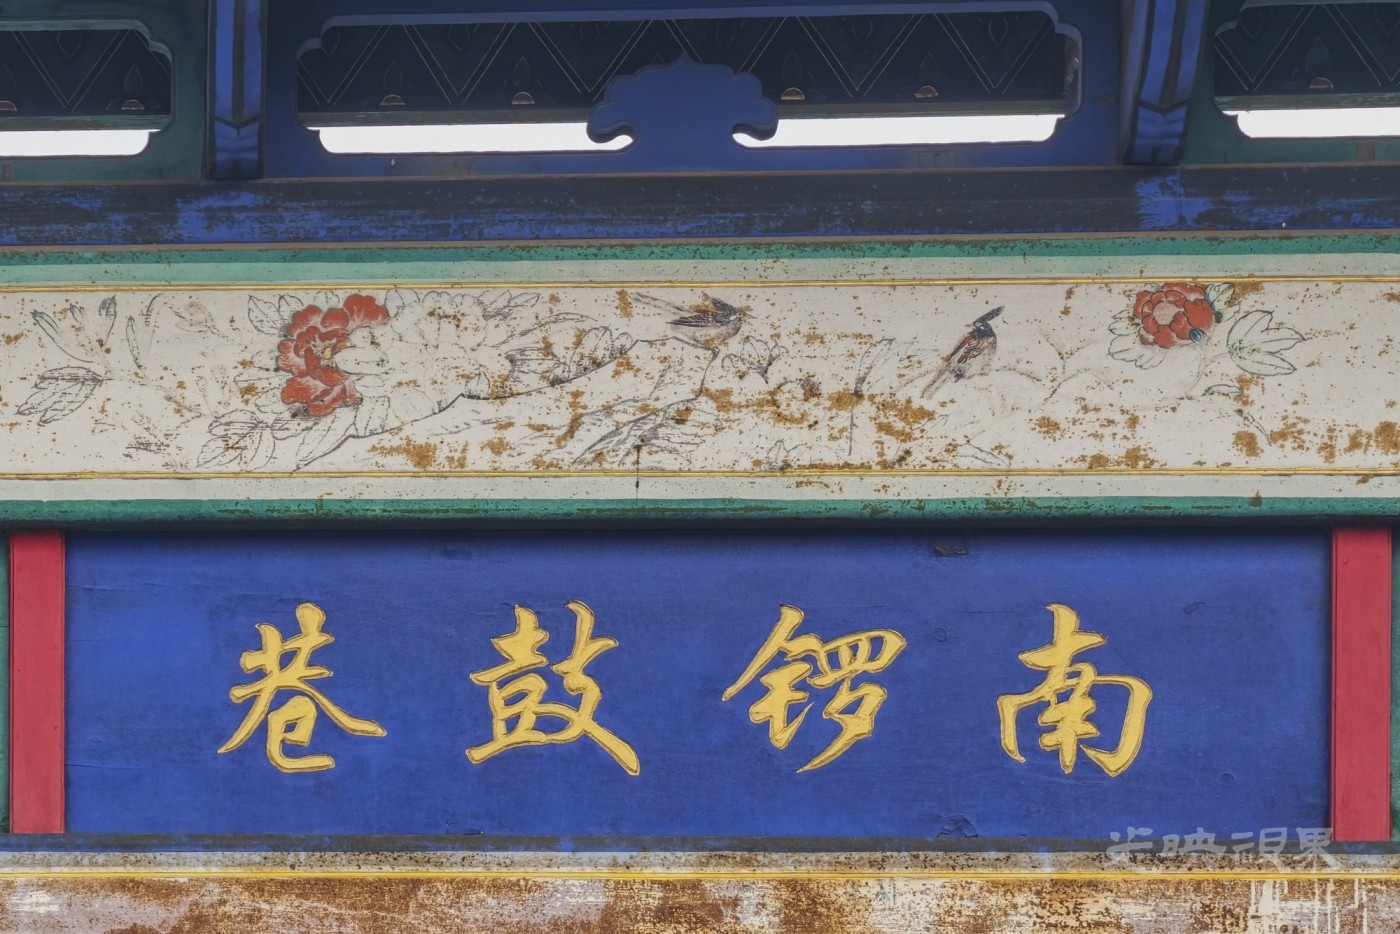 南锣鼓巷
光映视界